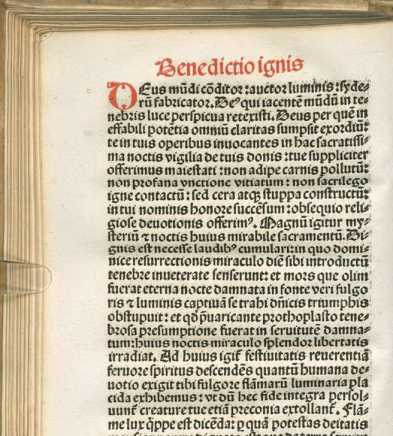 Benedictio ignis
DEus mūdi cōditor: auctor luminis: syde=
rū fabricator. De⁹ qui iacentē mūdū in te=
nebris luce perspicua retexisti. Deus per quē in
effabili potētia omniū claritas sumpsit exordiū:
te in tuis operibus inuocantes in hac sacratissi=
ma noctis vigilia de tuis donis: tue suppliciter
offerimus maiestati: non adipe carnis pollutū:
non profana vnctione vitiatum: non sacrilego
igne contactū: sed cera atqꝫ stuppa constructū:
in tui nominis honore succēsum: obsequio reli=
giose deuotionis offerim⁹. Magnū igitur my=
steriū ⁊ noctis huius mirabile sacramentū. Di=
gnis est necesse laudib⁹ cumulari: in quo domi=
nice resurrectionis miraculo diē sibi introductū
tenebre inueterate senserunt: et mors que olim
fuerat eterna nocte damnata in fonte veri fulgo
ris ⁊ luminis captiuā se trahi dn̄icis triumphis
obstupuit: et qď p̄uaricante prothoplasto tene=
brosa presumptione fuerat in seruitutē damna=
tum: huius noctis miraculo splendor libertatis
irradiat. Ad huius igit̄ festiuitatis reuerentiā
feruore spiritus descendēs quantū humana de=
uotio exigit tibi fulgore flāmarū luminaria pla
cida exhibemus: vt dū hec fide integra persol=
uunt̄ creature tue etiā preconia extollant̄. Flā=
me lux q̄ppe est dicēda: p quā potestas deitatis